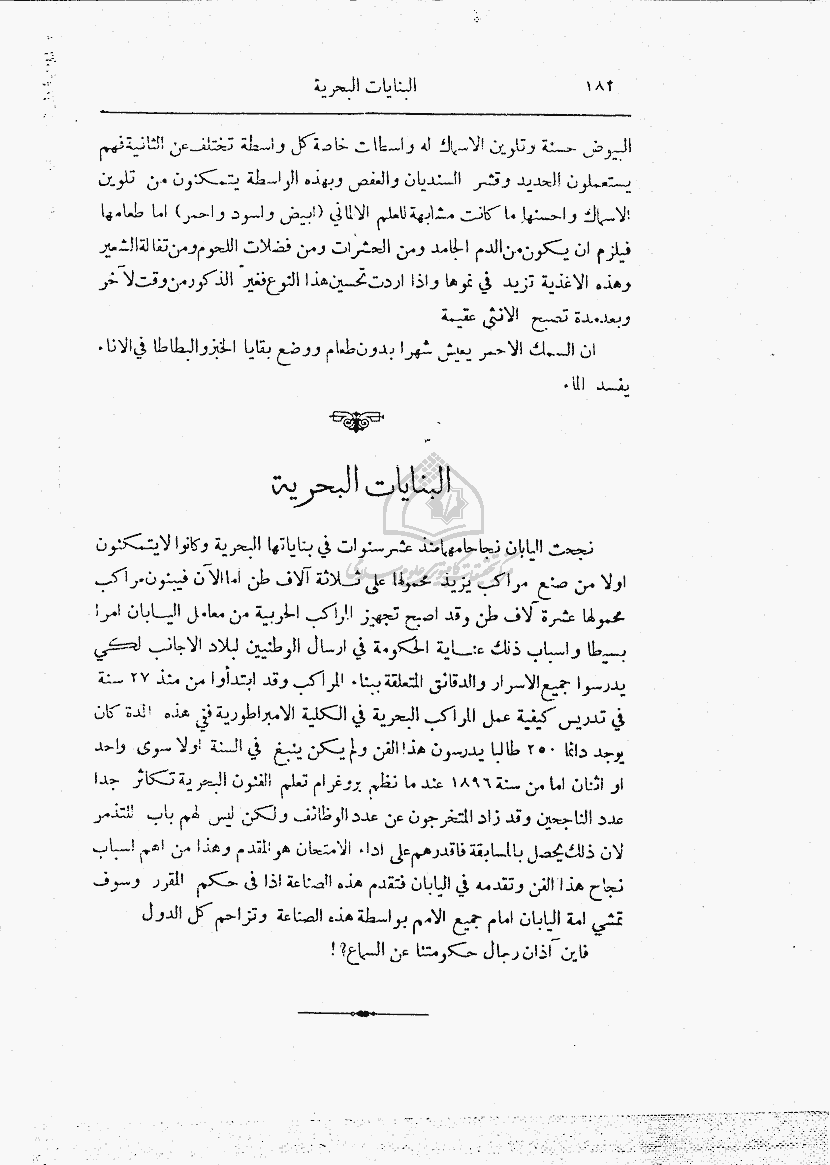 ١٨٢ البنايات البحرية
البيوض حسنة وتلوين الاسماك له واسطات خاصة كل واسطة تختلف عن الثانية فهم
يستعملون الحديد وقشر السنديان والعفص وبهذه الواسطة يتمكنون من تلوين
الاسماك واحسنها ما كانت مشابهة للعلم الالماني (ابيض واسود واحمر) اما طعامها
فيلزم ان يكون من الدم الجامد ومن الحشرات ومن فضلات اللحوم ومن تفالة الشعير
وهذه الاغذية تزيد في نموها واذا اردت تحسين هذا النوع فغير الذكور من وقت لآخر
وبعد مدة تصبح الانثي عقيمة
ان السمك الاحمر يعيش شهرا بدون طعام ووضع بقايا الخبز والبطاطا في الاناء
يفسد الماء
البنايات البحرية
نجحت اليابان نجاحا مهما منذ عشر سنوات في بناياتها البحرية وكانوا لا يتمكنون
اولا من صنع مراكب يزيد محمولها على ثلاثة آلاف طن اما الآن فيبنون مراكب
محمولها عشرة آلاف طن وقد اصبح تجهيز المراكب الحربية من معامل اليابان امرا
بسيطا واسباب ذلك عناية الحكومة في ارسال الوطنيين لبلاد الاجانب لكي
يدرسوا جميع الاسرار والدقائق المتعلقة ببناء المراكب وقد ابتدأوا من منذ ٢٧ سنة
في تدريس كيفية عمل المراكب البحرية في الكلية الامبراطورية ففي هذه المدة كان
يوجد دائما ٢٥٠ طالبا يدرسون هذا الفن ولم يكن ينبغ في السنة اولا سوى واحد
او اثنان اما من سنة ١٨٩٦ عند ما نظم بروغرام تعلم الفنون البحرية تكاثر جدا
عدد الناجحين وقد زاد المتخرجون عن عدد الوظائف ولكن ليس لهم باب للتذمر
لان ذلك يحصل بالمسابقة فاقدرهم على اداء الامتحان هو المقدم وهذا من اهم اسباب
نجاح هذا الفن وتقدمه في اليابان فتقدم هذه الصناعة اذا في حكم المقرر وسوف
تمشي امة اليابان امام جميع الامم بواسطة هذه الصناعة وتزاحم كل الدول
فاين آذان رجال حكومتنا عن السماع؟!